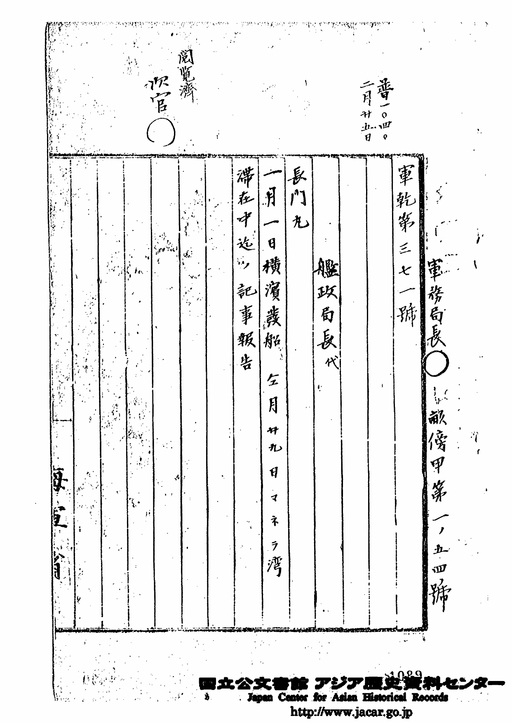 軍務局長
畝傍甲第一ノ五四號
軍乾第三七一號
普一〇四〇
二月廿五日
艦政局長代
長門丸
一月一日橫濱發船仝月廿九日マネラ湾
滞在中迄ノ記事報告
閲覧濟
次官
海軍省
1089
国立公文書館 アジア歴史資料センター
Japan Center for Asian Historical Records
http://www.jacar.go.jp